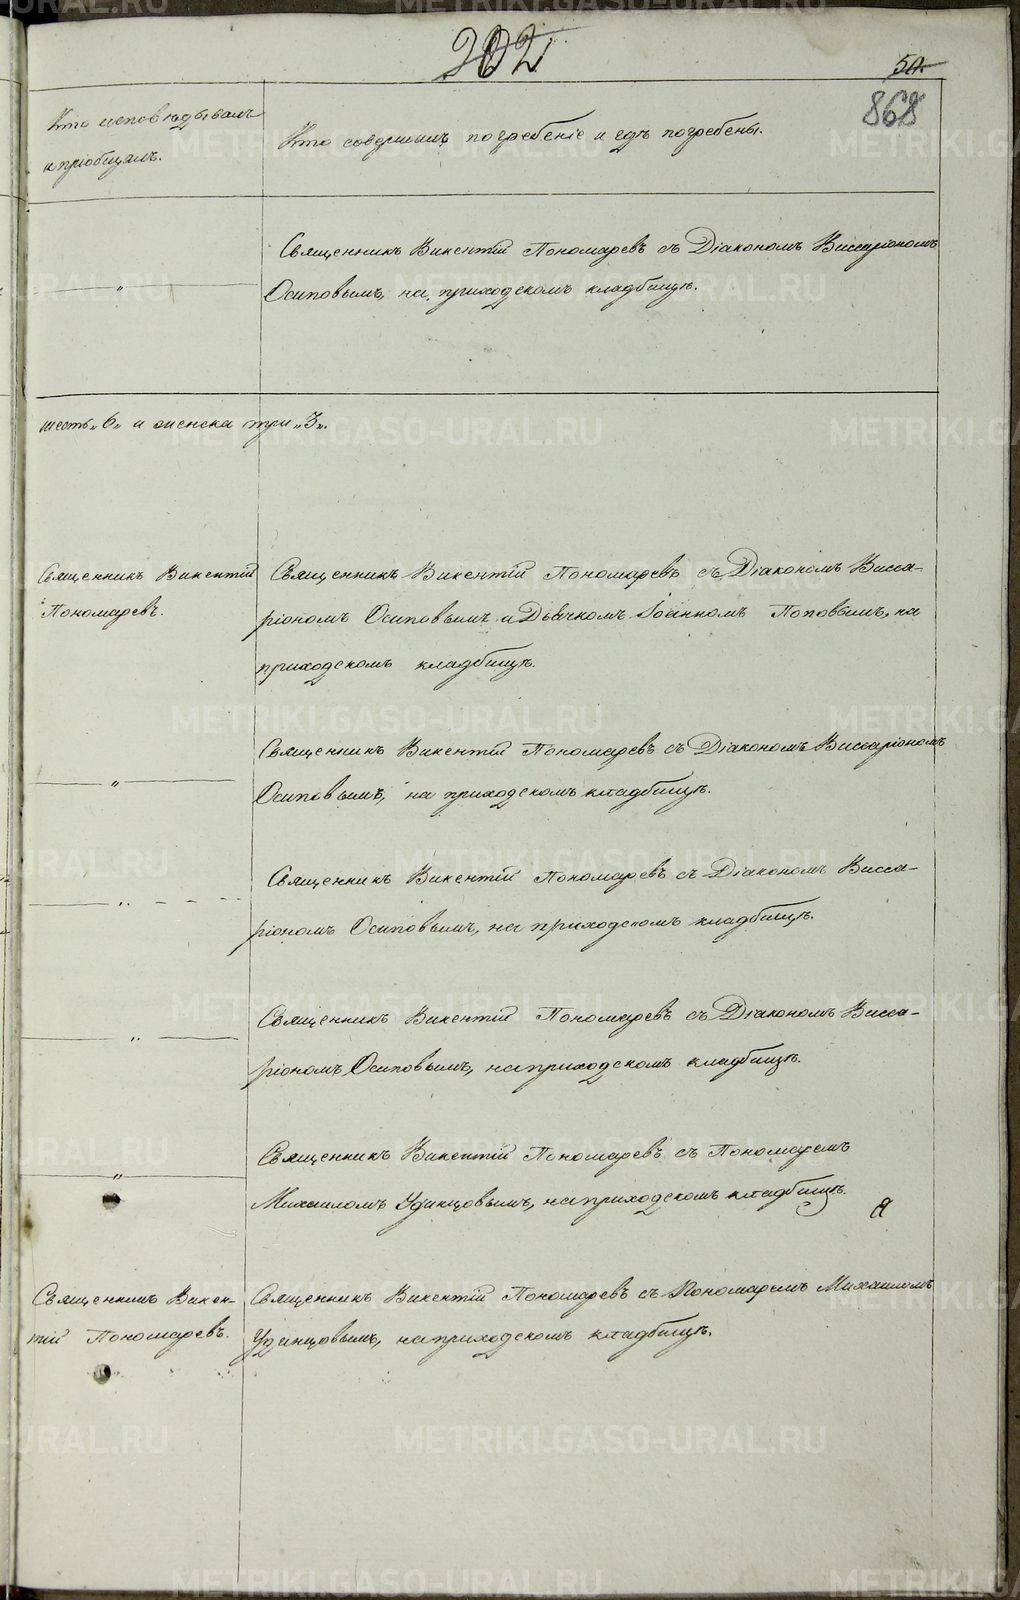 202
50
868
Кто исповѣдывалъ
и пріобщалъ.
Кто совершилъ погребеніе и гдѣ погребены.
Священникъ Викентій Пономаревъ съ Діакономъ Виссаріономъ
„
Осиповымъ, на приходскомъ кладбищѣ.
шесть „6„ и женска три „3„.
Священникъ Викентій
Пономаревъ.
Священникъ Викентій Пономаревъ съ Діакономъ Висса-
ріономъ Осиповымъ и Дьячкомъ Іоанномъ Поповымъ, на
приходскомъ кладбищѣ.
Священникъ Викентій Пономаревъ съ Діакономъ Виссаріономъ
„
Осиповымъ, на приходскомъ кладбищѣ.
Священникъ Викентій Пономаревъ съ Діакономъ Висса-
„
ріономъ Осиповымъ, на приходскомъ кладбищѣ.
Священникъ Викентій Пономаревъ съ Діакономъ Висса-
„
ріономъ Осиповымъ, на приходскомъ кладбищѣ.
Священникъ Викентій Пономаревъ съ Пономаремъ
„
Михаиломъ Удинцовымъ, на приходскомъ кладбищѣ.
Священникъ Викен-
тій Пономаревъ.
Священникъ Викентій Пономаревъ съ Пономаремъ Михаиломъ
Удинцовымъ, на приходскомъ кладбищѣ.
METRIKI.GASO-URAL.RU